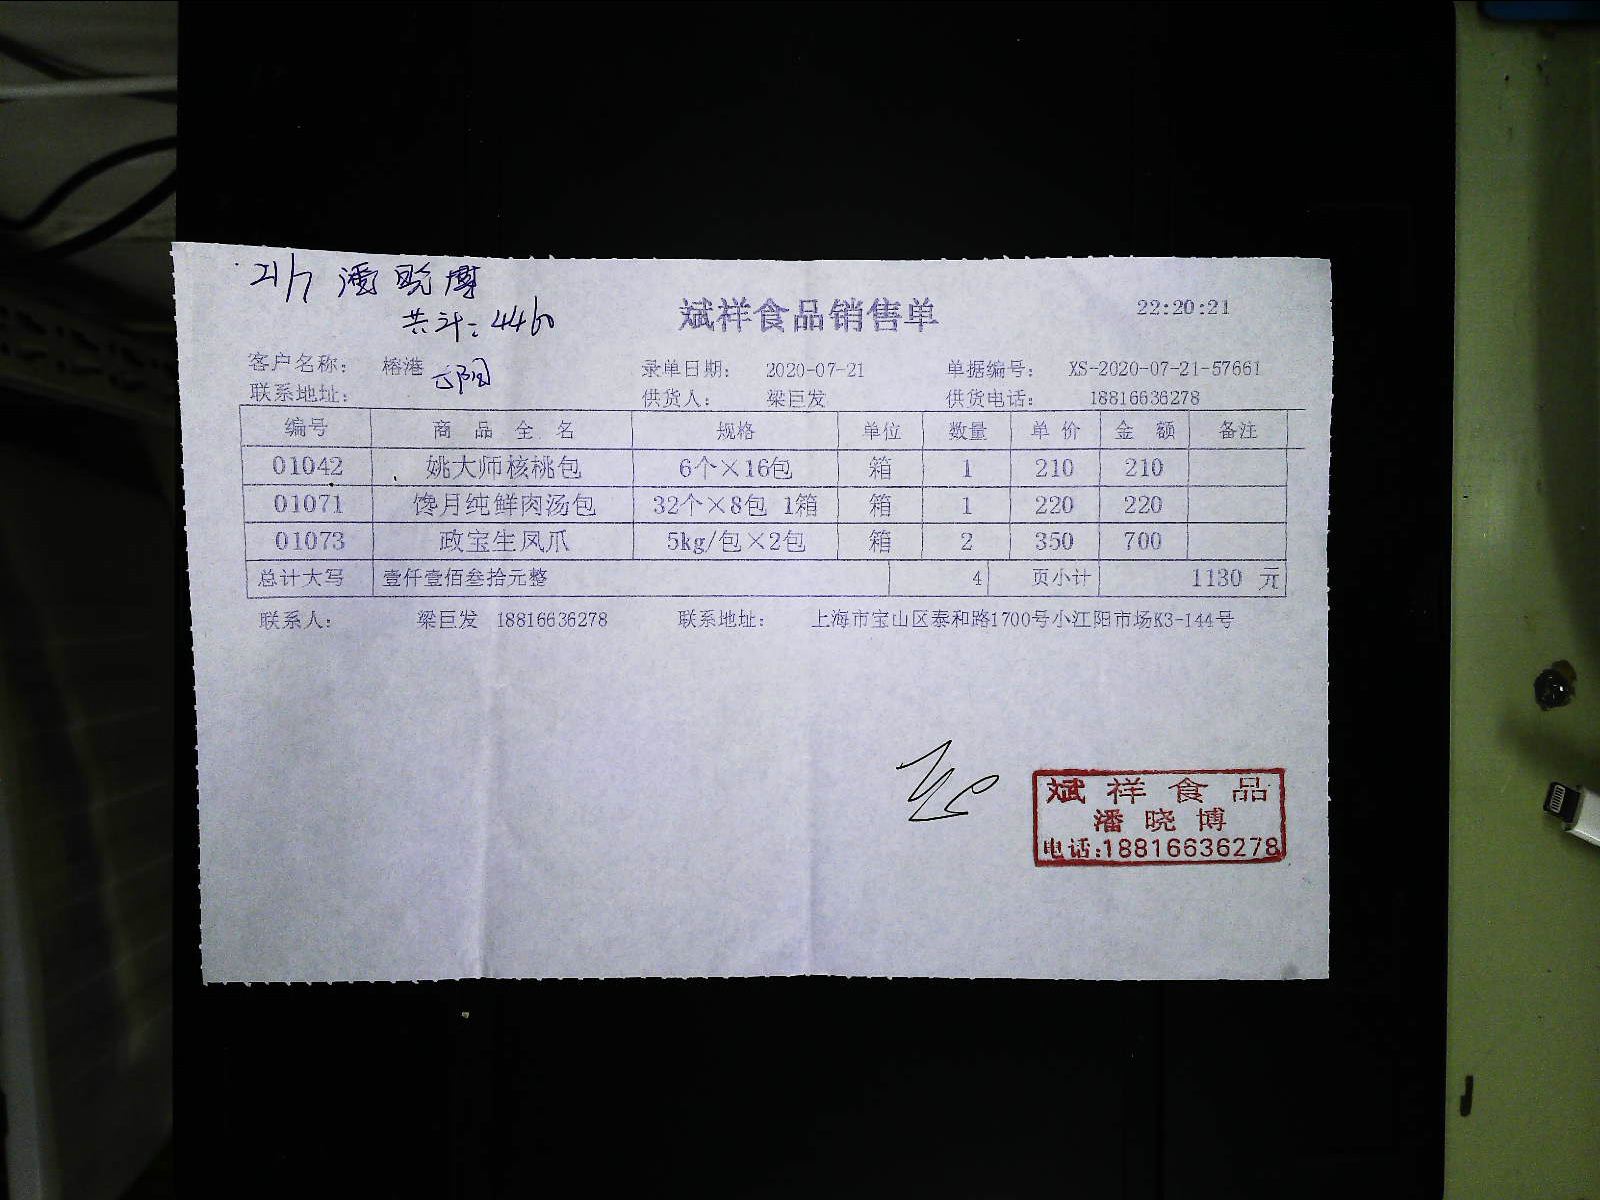 21/7 潘晓博
共计：4460
斌祥食品销售单 22:20:21
客户名称： 榕港 录单日期： 2020-07-21 单据编号： XS-2020-07-21-57661
联系地址： 供货人： 梁巨发 供货电话： 18816636278
编号 商品全名 规格 单位 数量 单价 金额 备注
01042 姚大师核桃包 6个×16包 箱 1 210 210
01071 馋月纯鲜肉汤包 32个×8包 1箱 箱 1 220 220
01073 政宝生凤爪 5kg/包×2包 箱 2 350 700
总计大写 壹仟壹佰叁拾元整 4 页小计 1130 元
联系人： 梁巨发 18816636278 联系地址： 上海市宝山区泰和路1700号小江阳市场K3-144号
斌祥食品
潘晓博
电话:18816636278